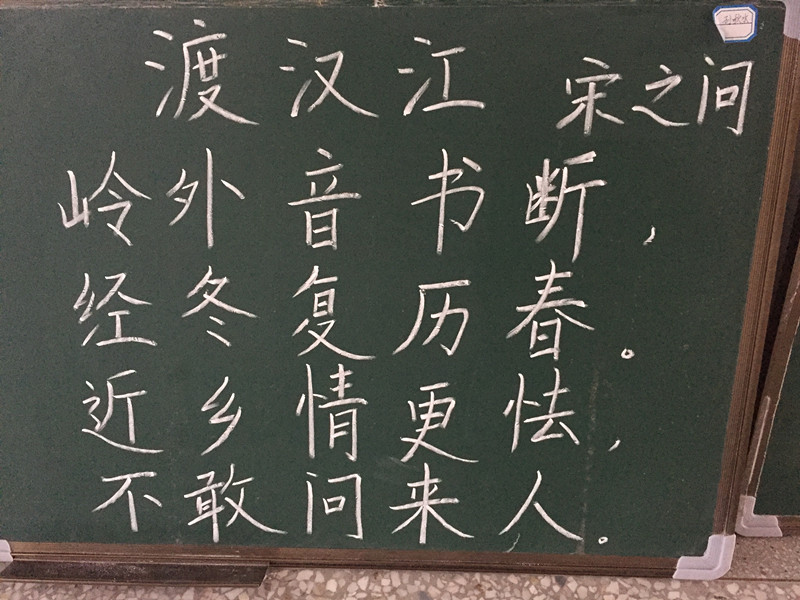 渡汉江 宋之问
岭外音书断，
经冬复历春。
近乡情更怯，
不敢问来人。